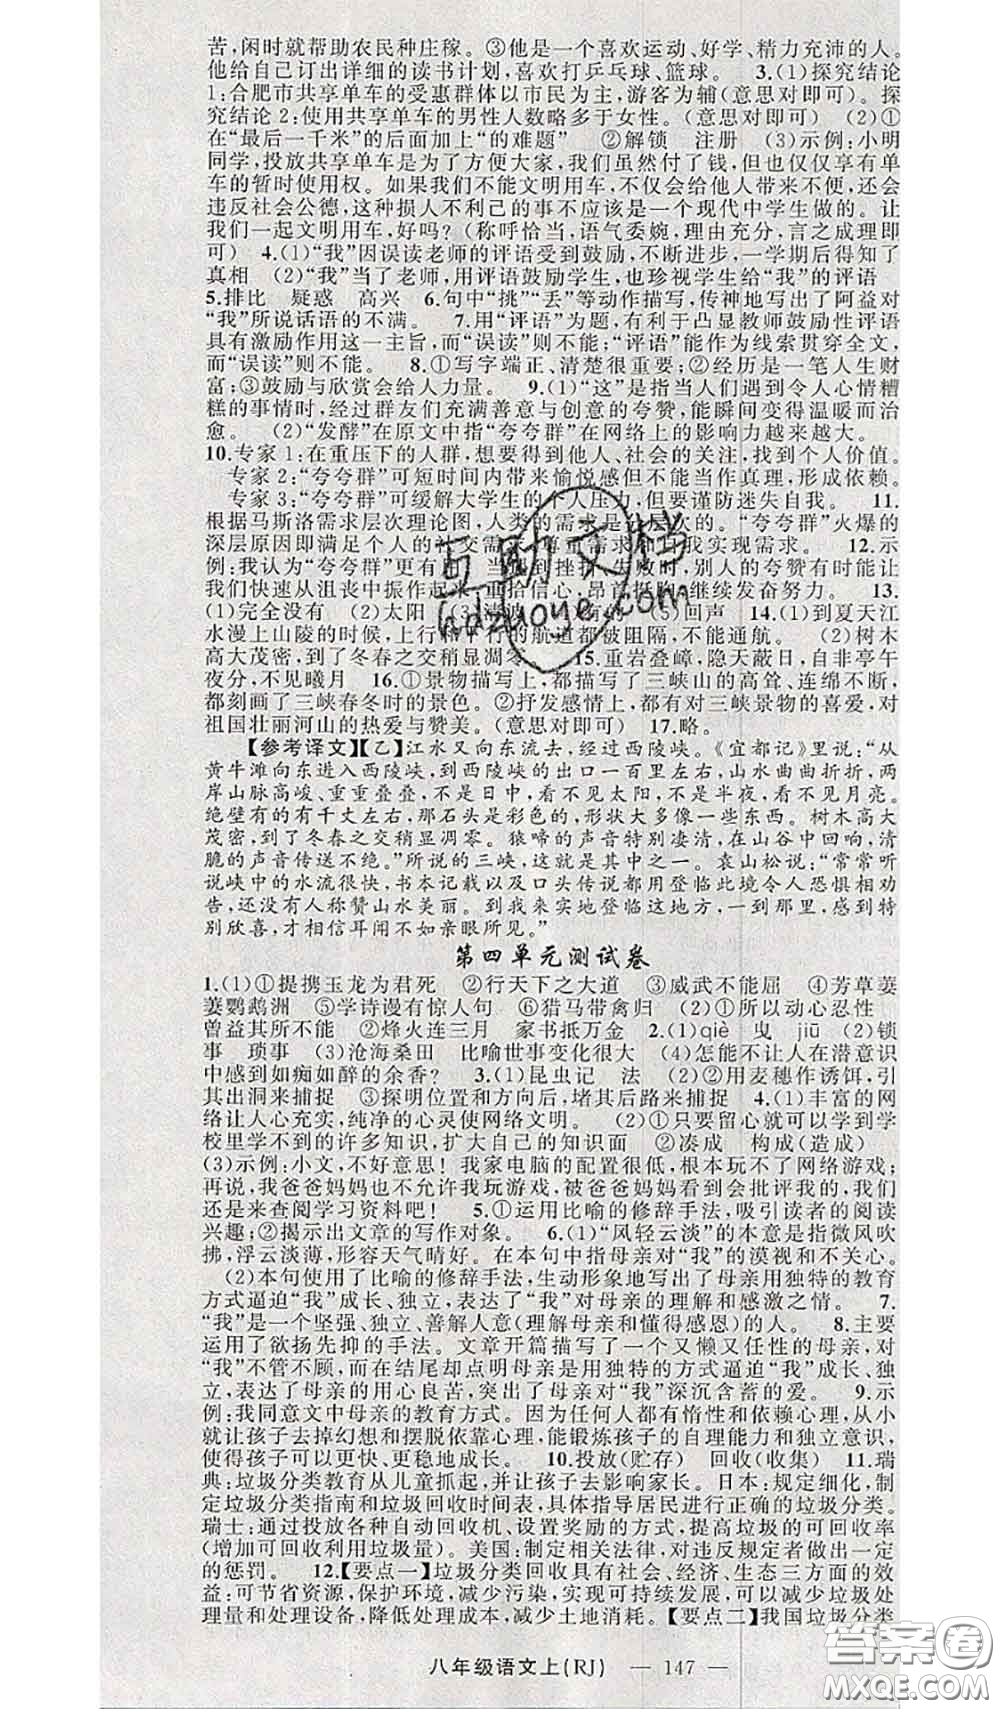 苦,闲时就帮助农民种庄稼。③他是一个喜欢运动、好学、精力充沛的人。
他给自己订出详细的读书计划,喜欢打乒乓球、篮球。 3.(1)探究结论
1:合肥市共享单车的受惠群体以市民为主,游客为辅(意思对即可)。探
究结论2:使用共享单车的男性人数略多于女性。(意思对即可) (2)①
在“最后一千米”的后面加上“的难题” ②解锁 注册 (3)示例:小明
同学,投放共享单车是为了方便大家,我们虽然付了钱,但也仅仅享有单
车的暂时使用权。如果我们不能文明用车,不仅会给他人带来不便,还会
违反社会公德,这种损人不利己的事不应该是一个现代中学生做的。让
我们一起文明用车,好吗?(称呼恰当,语气委婉,理由充分,言之成理即
可) 4.(1)“我”因误读老师的评语受到鼓励,不断进步,一学期后得知了
真相 (2)“我”当了老师,用评语鼓励学生,也珍视学生给“我”的评语
5.排比 疑惑 高兴 6.句中“挑”“丢”等动作描写,传神地写出了阿益对
“我”所说话语的不满。 7.用“评语”为题,有利于凸显教师鼓励性评语
具有激励作用这一主旨,而“误读”则不能;“评语”能作为线索贯穿全文,
而“误读”则不能。 8.①写字端正、清楚很重要;②经历是一笔人生财
富;③鼓励与欣赏会给人力量。 9.(1)“这”是指当人们遇到令人心情糟
糕的事情时,经过群友们充满善意与创意的夸赞,能瞬间变得温暖而治
愈。 (2)“发酵”在原文中指“夸夸群”在网络上的影响力越来越大。
10.专家1:在重压下的人群,想要得到他人、社会的关注,找到个人价值。
专家2:“夸夸群”可短时间内带来愉悦感但不能当作真理,形成依赖。
专家3:“夸夸群”可缓解大学生的个人压力,但要谨防迷失自我。 11.
根据马斯洛需求层次理论图,人类的需求是分层次的。“夸夸群”火爆的
深层原因即满足个人的社交需求、尊重需求和自我实现需求。 12.示
例:我认为“夸夸群”更有用,当遇到挫折、失败时,别人的夸赞有时能让
我们快速从沮丧中振作起来,重拾信心,昂首挺胸,继续发奋努力。 13.
(1)完全没有 (2)太阳 (3) (5)回声 14.(1)到夏天江
水漫上山陵的时候,上行和下行的航道都被阻隔,不能通航。 (2)树木
高大茂密,到了冬春之交稍显凋零。 15.重岩叠嶂,隐天蔽日,自非亭午
夜分,不见曦月 16.①景物描写上,都描写了三峡山的高耸、连绵不断,
都刻画了三峡春冬时的景色。②抒发感情上,都有对三峡景物的喜爱,对
祖国壮丽河山的热爱与赞美。(意思对即可) 17.略。
【参考译文】【乙】江水又向东流去,经过西陵峡。《宜都记》里说:“从
黄牛滩向东进入西陵峡,到西陵峡的出口一百里左右,山水曲曲折折,两
岸山脉高峻、重重叠叠,不是日中,看不见太阳,不是半夜,看不见月亮。
绝壁有的有千丈左右,那石头是彩色的,形状大多像一些东西。树木高大
茂密,到了冬春之交稍显凋零。猿啼的声音特别凄清,在山谷中回响,清
脆的声音传送不绝。”所说的三峡,这就是其中之一。袁山松说:“常常听
说峡中的水流很快,书本记载以及口头传说都用登临此境令人恐惧相劝
告,还没有人称赞山水美丽。到我来实地登临这地方,一到那里,感到特
别欣喜,才相信耳闻不如亲眼所见。”
第四单元测试卷
1.(1)①提携玉龙为君死 ②行天下之大道 ③威武不能屈 ④芳草萋
萋鹦鹉洲 ⑤学诗谩有惊人句 ⑥猎马带禽归 (2)①所以动心忍性
曾益其所不能 ②烽火连三月 家书抵万金 2.(1)qiè 曳 jiū (2)锁
事 琐事 (3)沧海桑田 比喻世事变化很大 (4)怎能不让人在潜意识
中感到如痴如醉的余香? 3.(1)昆虫记 法 (2)②用麦穗作诱饵,引
其出洞来捕捉 ③探明位置和方向后,堵其后路来捕捉 4.(1)丰富的网
络让人心充实,纯净的心灵使网络文明。 (2)①只要留心就可以学到学
校里学不到的许多知识,扩大自己的知识面 ②凑成 构成(造成)
(3)示例:小文,不好意思!我家电脑的配置很低,根本玩不了网络游戏;
再说,我爸爸妈妈也不允许我玩游戏,被爸爸妈妈看到会批评我的,我们
还是来查阅学习资料吧! 5.①运用比喻的修辞手法,吸引读者的阅读
兴趣;②揭示出文章的写作对象。 6.(1)“风轻云淡”的本意是指微风吹
拂,浮云淡薄,形容天气晴好。在本句中指母亲对“我”的漠视和不关心。
(2)本句使用了比喻的修辞手法,生动形象地写出了母亲用独特的教育
方式逼迫“我”成长、独立,表达了“我”对母亲的理解和感激之情。 7.
“我”是一个坚强、独立、善解人意(理解母亲和懂得感恩)的人。 8.主要
运用了欲扬先抑的手法。文章开篇描写了一个又懒又任性的母亲,对
“我”不管不顾,而在结尾却点明母亲是用独特的方式逼迫“我”成长、独
立,表达了母亲的用心良苦,突出了母亲对“我”深沉含蓄的爱。 9.示
例:我同意文中母亲的教育方式。因为任何人都有惰性和依赖心理,从小
就让孩子去掉幻想和摆脱依靠心理,能锻炼孩子的自理能力和独立意识,
使得孩子可以更快、更稳地成长。 10.投放(贮存) 回收(收集) 11.瑞
典:垃圾分类教育从儿童抓起,并让孩子去影响家长。日本:规定细化,制
定垃圾分类指南和垃圾回收时间表,具体指导居民进行正确的垃圾分类。
瑞士:通过投放各种自动回收机、设置奖励的方式,提高垃圾的可回收率
(增加可回收利用垃圾量)。美国:制定相关法律,对违反规定者做出一定
的惩罚。 12.【要点一】垃圾分类回收具有社会、经济、生态三方面的效
益:可节省资源,保护环境,减少污染,实现可持续发展,可以减少垃圾处
理量和处理设备,降低处理成本,减少土地消耗。【要点二】我国垃圾分类
八年级语文上(RJ) — 147 —
互助文档
hdzuoye.com
答案圈
MXQE.COM